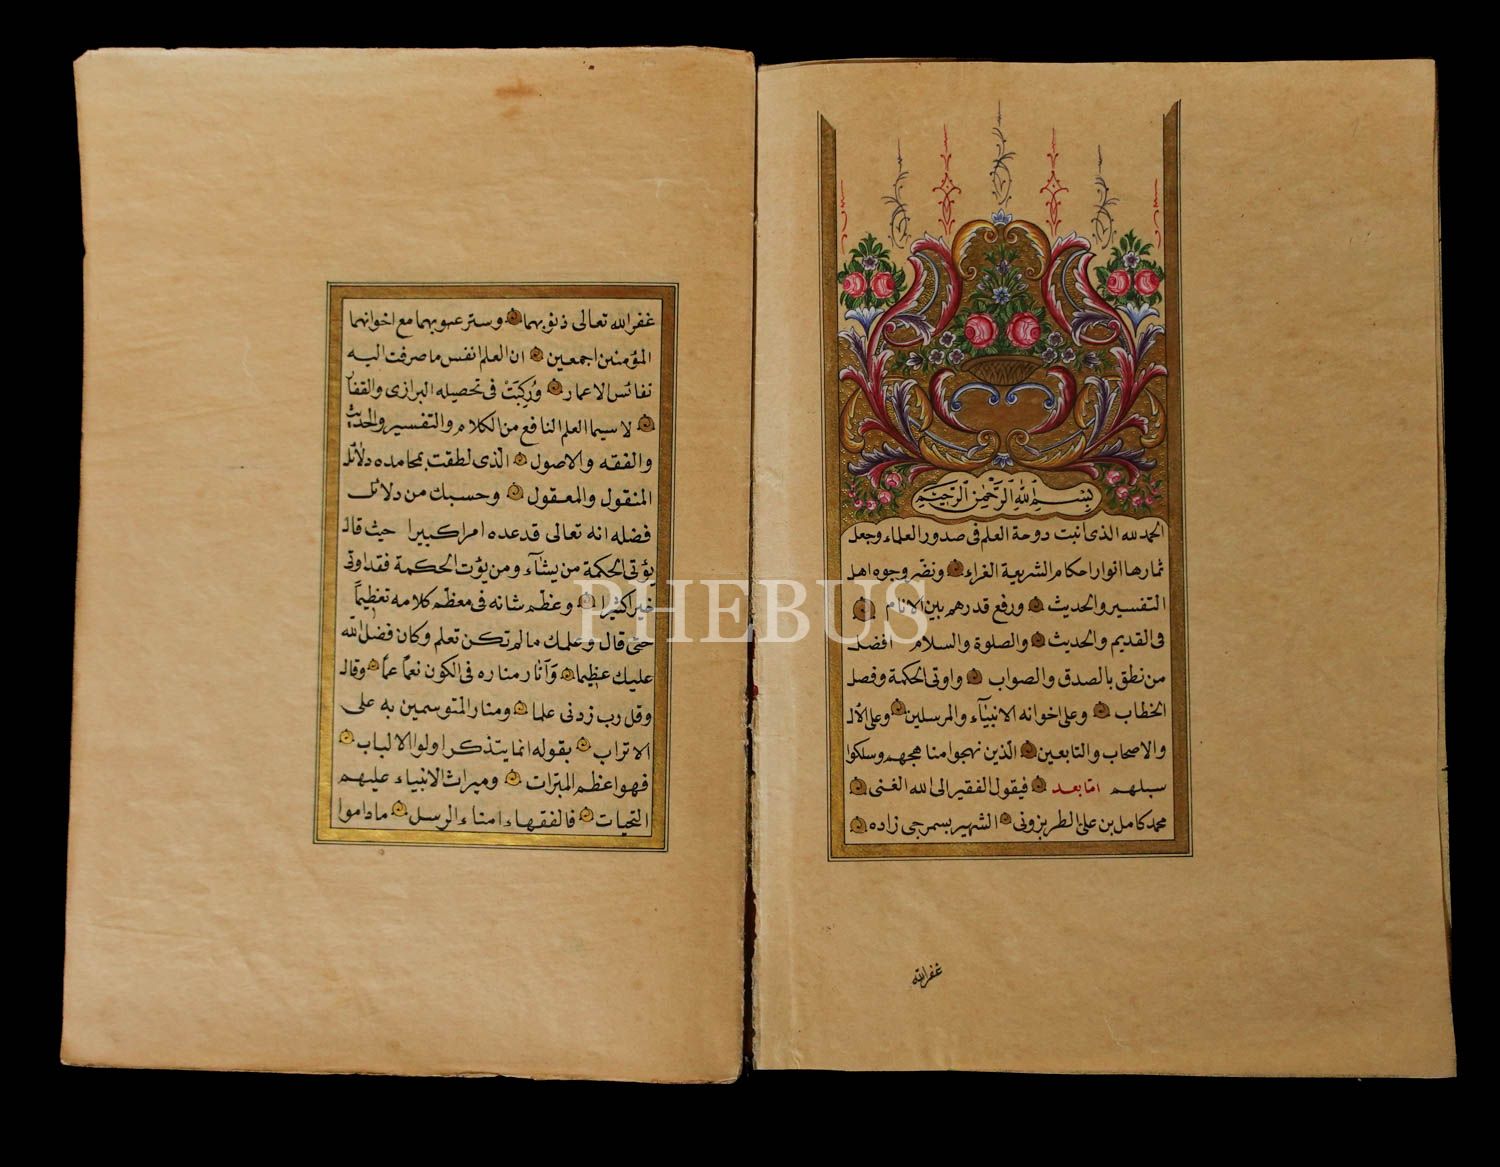 بسم الله الرحمن الرحيم
الحمد لله الذى انبت دوحة العلم فى صدور العلماء وجعل
ثمارها انوار احكام الشريعة الغراء ونضر وجوه اهل
التفسير والحديث ورفع قدرهم بين الانام
فى القديم والحديث والصلوة والسلام افضل
من نطق بالصدق والصواب واوتى الحكمة وفصل
الخطاب وعلى اخوانه الانبيآء والمرسلين وعلى الال
والاصحاب والتابعين الذين نهجوا مناهجهم وسلكوا
سبلهم امّا بعد فيقول الفقير الى الله الغنى
محمد كامل بن على الطربزونى الشهير بسمرجى زاده
غفر الله
غفر الله تعالى ذنوبهما وستر عيوبهما مع اخوانهما
المؤمنين اجمعين ان العلم انفس ما صرفت اليه
نفائس الاعمار وركبت فى تحصيله البرازى والقفار
لا سيما العلم النافع من الكلام والتفسير والحديث
والفقه والاصول الذى نطقت بمحامده دلائل
المنقول والمعقول وحسبك من دلائل
فضله انه تعالى قد عده امرا كبيرا حيث قال
يؤتى الحكمة من يشآء ومن يؤت الحكمة فقد اوتى
خيرا كثيرا وعظم شانه فى معظم كلامه تعظيماً
حتى قال وعلمك ما لم تكن تعلم وكان فضل الله
عليك عظيما وآثار مناره فى الكون نعماً عمّا وقال
وقل رب زدنى علما ومنار المتوسمين به على
الاتراب بقوله انما يتذكر اولوا الالباب
فهو اعظم المبرّات وميراث الانبياء عليهم
التحيات فالفقهاء امناء الرسل ماداموا
PHEBUS